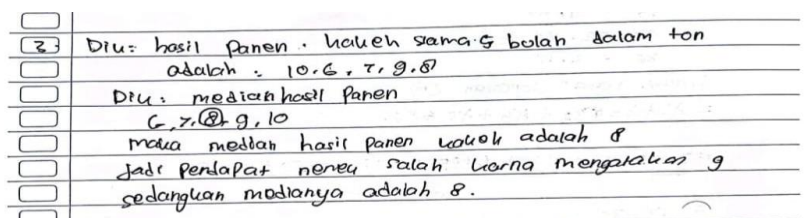 3 Diu: hasil Panen. kakek slama 5 bulan dalam ton
adalah : 10, 6, 7, 9, 8
Diu: median hasil Panen
6, 7, 8, 9, 10
maka median hasil panen kakek adalah 8
Jadi Pendapat nenek salah karna mengatakan 9
sedangkan medianya adalah 8.